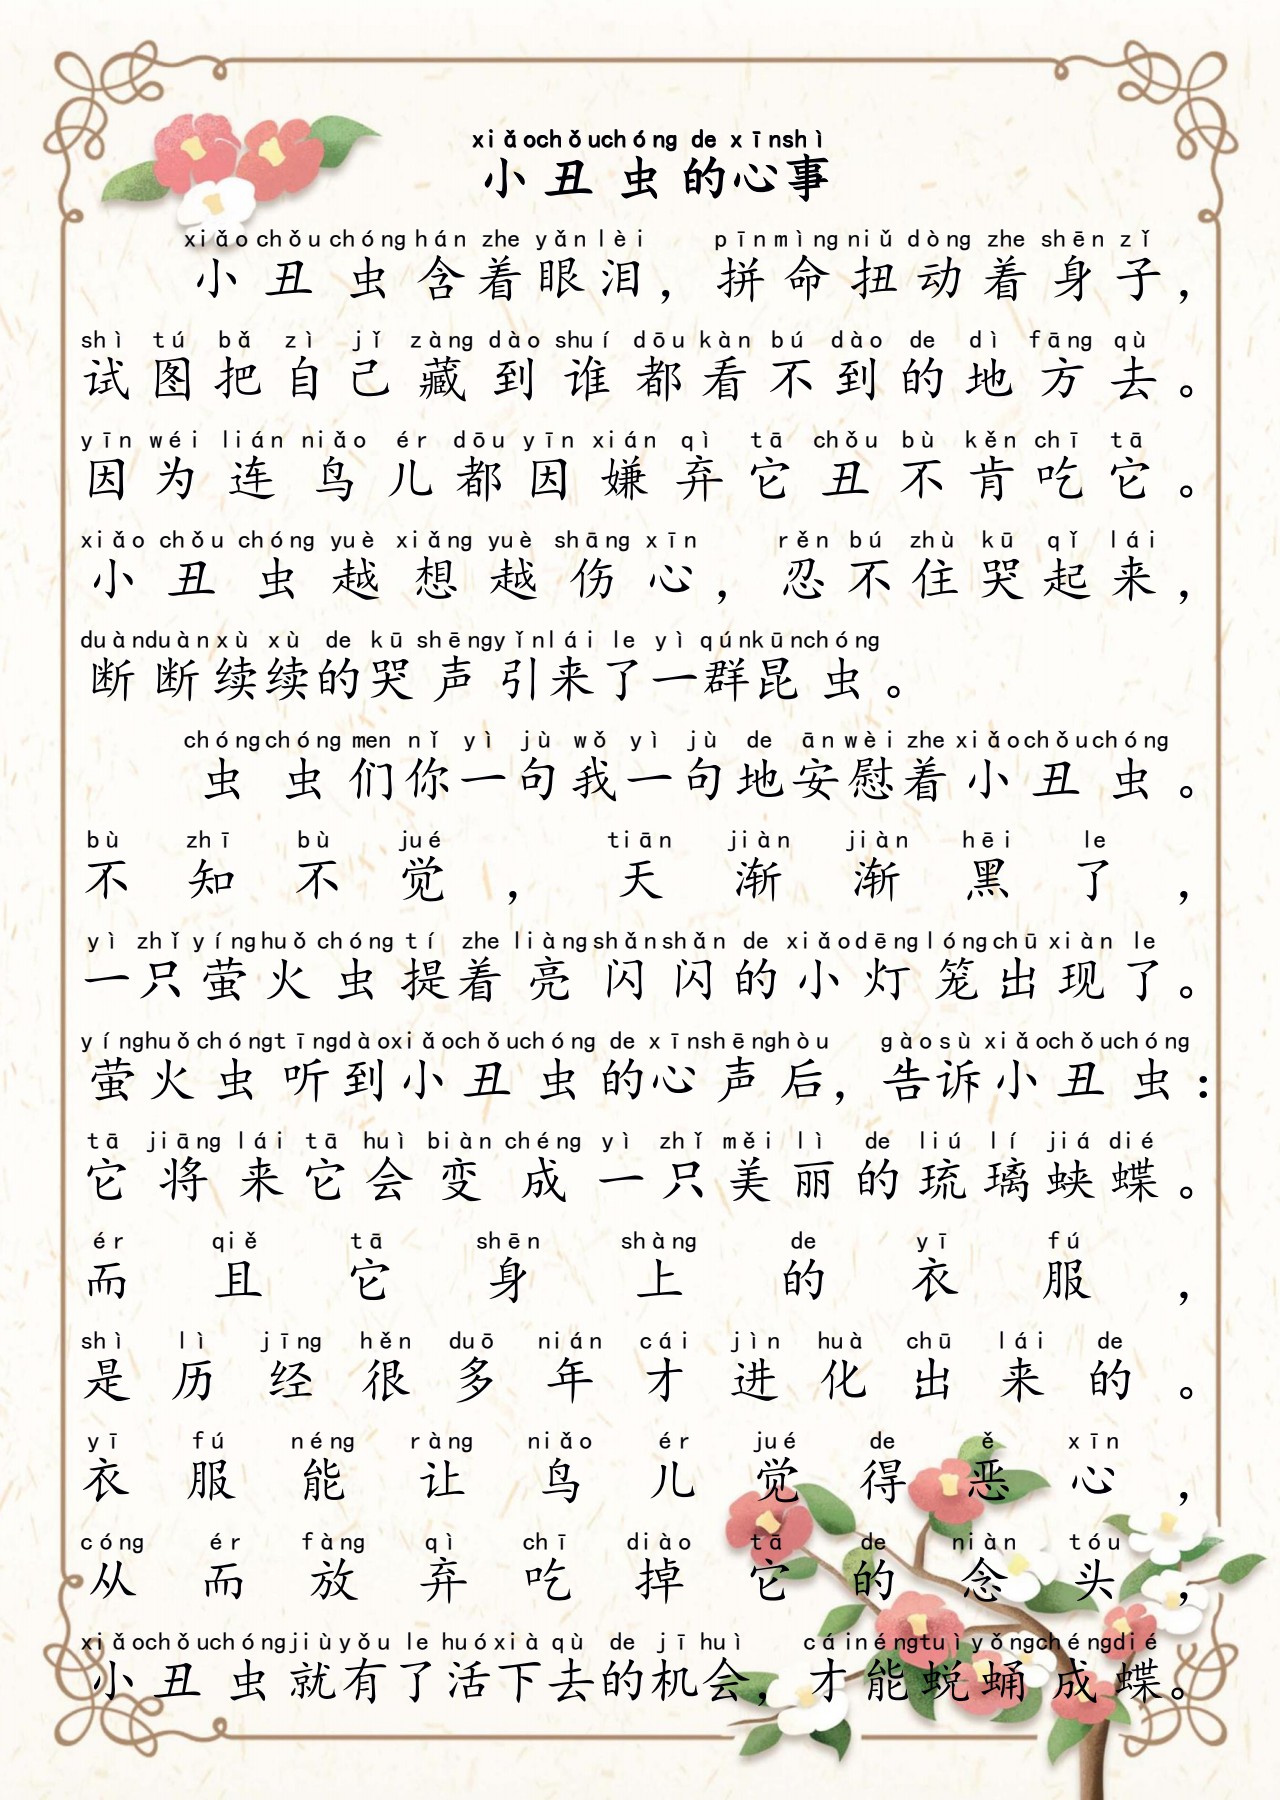 xiǎochǒuchóng de xīnshì
小丑虫的心事
xiǎo chǒu chóng hán zhe yǎn lèi pīn mìng niǔ dòng zhe shēn zǐ
小丑虫含着眼泪，拼命扭动着身子，
shì tú bǎ zì jǐ zàng dào shuí dōu kàn bú dào de dì fāng qù
试图把自己藏到谁都看不到的地方去。
yīn wéi lián niǎo ér dōu yīn xián qì tā chǒu bù kěn chī tā
因为连鸟儿都因嫌弃它丑不肯吃它。
xiǎo chǒu chóng yuè xiǎng yuè shāng xīn rěn bú zhù kū qǐ lái
小丑虫越想越伤心，忍不住哭起来，
duànduànxù xù de kū shēngyǐnlái le yì qúnkūnchóng
断断续续的哭声引来了一群昆虫。
chóngchóng men nǐ yì jù wǒ yì jù de ānwèi zhe xiǎochǒuchóng
虫虫们你一句我一句地安慰着小丑虫。
bù zhī bù jué tiān jiàn jiàn hēi le
不知不觉，天渐渐黑了，
yì zhǐ yínghuǒ chóng tí zhe liàngshǎnshǎn de xiǎodēnglóngchū xiàn le
一只萤火虫提着亮闪闪的小灯笼出现了。
yínghuǒchóngtīngdàoxiǎochǒuchóng de xīnshēnghòu gàosù xiǎochǒuchóng
萤火虫听到小丑虫的心声后，告诉小丑虫：
tā jiāng lái tā huì biàn chéng yì zhǐ měi lì de liú lí jiá dié
它将来它会变成一只美丽的琉璃蛱蝶。
ér qiě tā shēn shàng de yī fú
而且它身上的衣服，
shì lì jīng hěn duō nián cái jìn huà chū lái de
是历经很多年才进化出来的。
yī fú néng ràng niǎo ér jué de ě xīn
衣服能让鸟儿觉得恶心，
cóng ér fàng qì chī diào tā de niàn tóu
从而放弃吃掉它的念头，
xiǎochǒuchóngjiùyǒu le huóxià qù de jīhuì cáinéngtuìyǒngchéngdié
小丑虫就有了活下去的机会，才能蜕蛹成蝶。